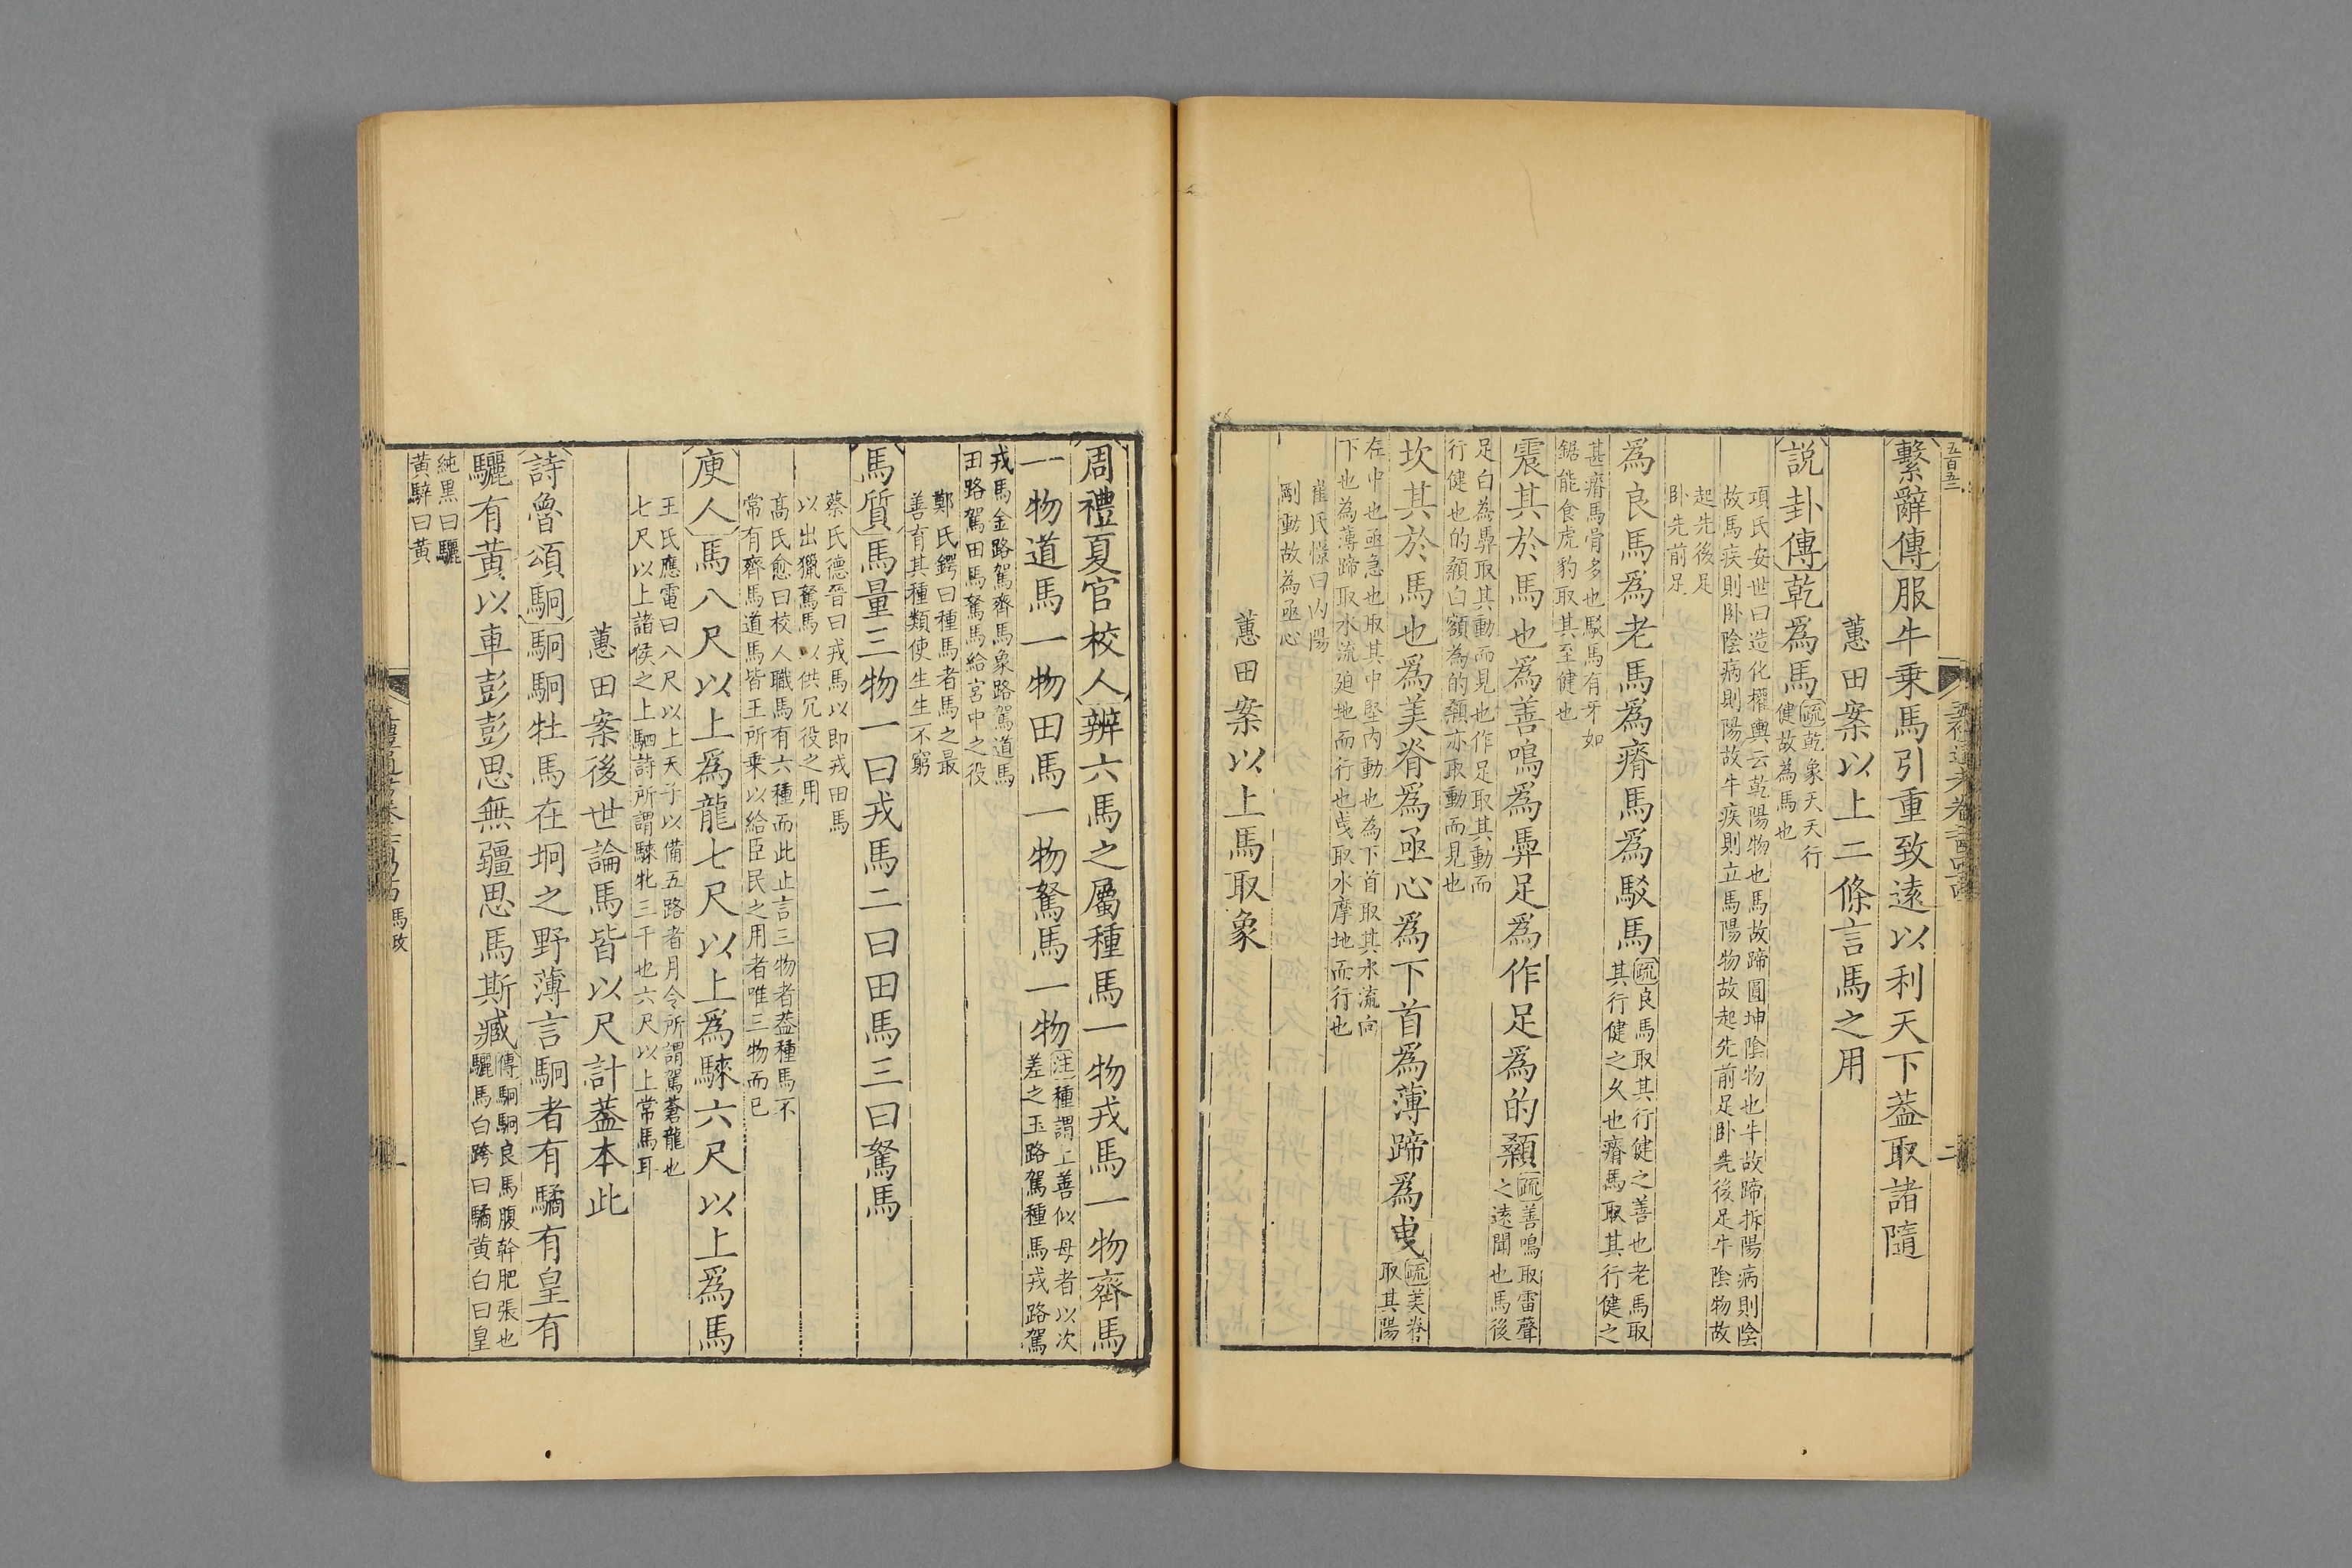 五百五二
繫辭傳服牛乗馬引重致逺以利天下葢取諸隨
蕙田案以上二條言馬之用
説卦傳乾爲馬疏乾象天天行
健故為馬也
項氏安世曰造化權輿云乾陽物也馬故蹄圓坤陰物也牛故蹄拆陽病則陰
故馬疾則卧陰病則陽故牛疾則立馬陽物故起先前足卧先後足牛陰物故
起先後足
卧先前足
爲良馬爲老馬爲瘠馬爲駁馬疏良馬取其行健之善也老馬取
其行健之久也瘠馬取其行健之
甚瘠馬骨多也駁馬有牙如
鋸能食虎豹取其至健也
震其於馬也爲善鳴爲馵足爲作足爲的顙疏善鳴取雷聲
之逺聞也馬後
足白為馵取其動而見也作足取其動而
行健也的顙白額為的顙亦取動而見也
坎其於馬也爲美脊爲亟心爲下首爲薄蹄爲曳疏美脊
取其陽
在中也亟急也取其中堅内動也為下首取其水流向
下也為薄蹄取水流迫地而行也曳取水摩地而行也
崔氏憬曰内陽
剛動故為亟心
蕙田案以上馬取象
周禮夏官校人辨六馬之屬種馬一物戎馬一物齊馬
一物道馬一物田馬一物駑馬一物注種謂上善似母者以次
差之玉路駕種馬戎路駕
戎馬金路駕齊馬象路駕道馬
田路駕田馬駑馬給宮中之役
鄭氏鍔曰種馬者馬之最
善育其種類使生生不窮
馬質馬量三物一曰戎馬二曰田馬三曰駑馬
蔡氏德晉曰戎馬以即戎田馬
以出獵駑馬以供冗役之用
髙氏愈曰校人職馬有六種而此止言三物者葢種馬不
常有齊馬道馬皆王所乗以給臣民之用者唯三物而已
庾人馬八尺以上爲龍七尺以上爲騋六尺以上爲馬
王氏應電曰八尺以上天子以備五路者月令所謂駕蒼龍也
七尺以上諸侯之上駟詩所謂騋牝三千也六尺以上常馬耳
蕙田案後世論馬皆以尺計葢本此
詩魯頌駉駉駉牡馬在坰之野薄言駉者有驈有皇有
驪有黄以車彭彭思無疆思馬斯臧傳駉駉良馬腹幹肥張也
驪馬白跨曰驈黄白曰皇
純黒曰驪
黄騂曰黄
馬政